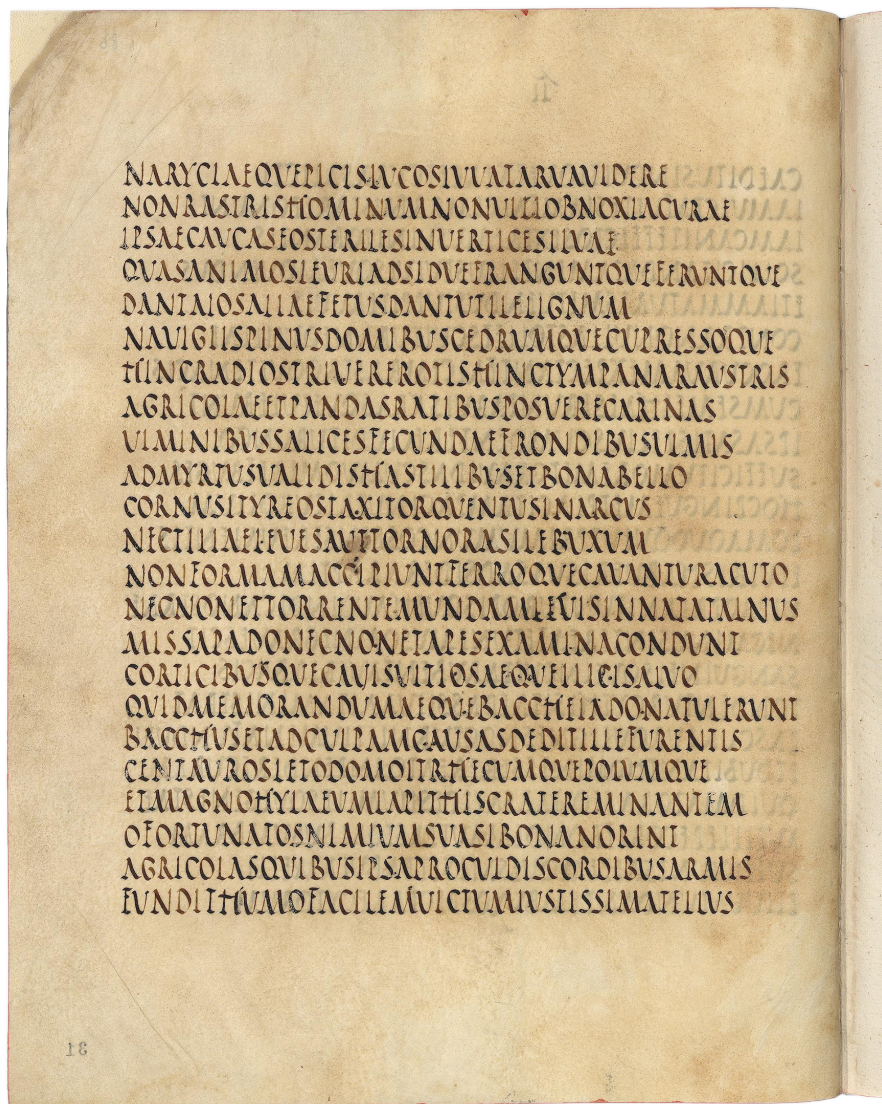 NARYCIAEQVEPICISLVCOSIVVATARVAVIDERE
NONRASTRISHOMINVMNONVLLIOBNOXIACVRAE
IPSAECAVCASEOSTERILESINVERTICESILVAE
QVASANIMOSIEVRIADSIDVEFRANGVNTQVEFERVNTQVE
DANTALIOSALIAEFETVSDANTVTILELIGNVM
NAVIGIISPINVSDOMIBVSCEDRVMQVECVPRESSOQVE
HINCRADIOSTRIVEREROTISHINCTYMPANARAVSTRIS
AGRICOLAEETPANDASRATIBVSPOSVERECARINAS
VIMINIBVSSALICESFECVNDAEFRONDIBVSVLMIS
ADMYRTVSVALIDISHASTILIBVSETBONABELLO
CORNVSITYREOSTAXITORQVENTVSINARCVS
NECTILIAELEVESAVTTORNORASILEBVXVM
NONFORMAMACCIPIVNTFERROQVECAVANTVRACVTO
NECNONETTORRENTEMVNDAMLEVISINNATATALNVS
MISSAPADONECNONETAPESEXAMINACONDVNT
CORTICIBVSQVECAVISVITIOSAEQVEILICISALVO
QVIDMEMORANDVMAEQVEBACCHEIADONATVLERVNT
BACCHVSETADCVLPAMCAVSASDEDITILLEFVRENTIS
CENTAVROSLETODOMOITRHECVMQVEPOLVMQVE
ETMAGNOHYLAEVMLAPITHISCRATEREMINANTEM
OFORTVNATOSNIMIVMSVASIBONANORINT
AGRICOLASQVIBVSIPSAPROCVLDISCORDIBVSARMIS
FVNDITHVMOFACILEMVICTVMIVSTISSIMATELLVS